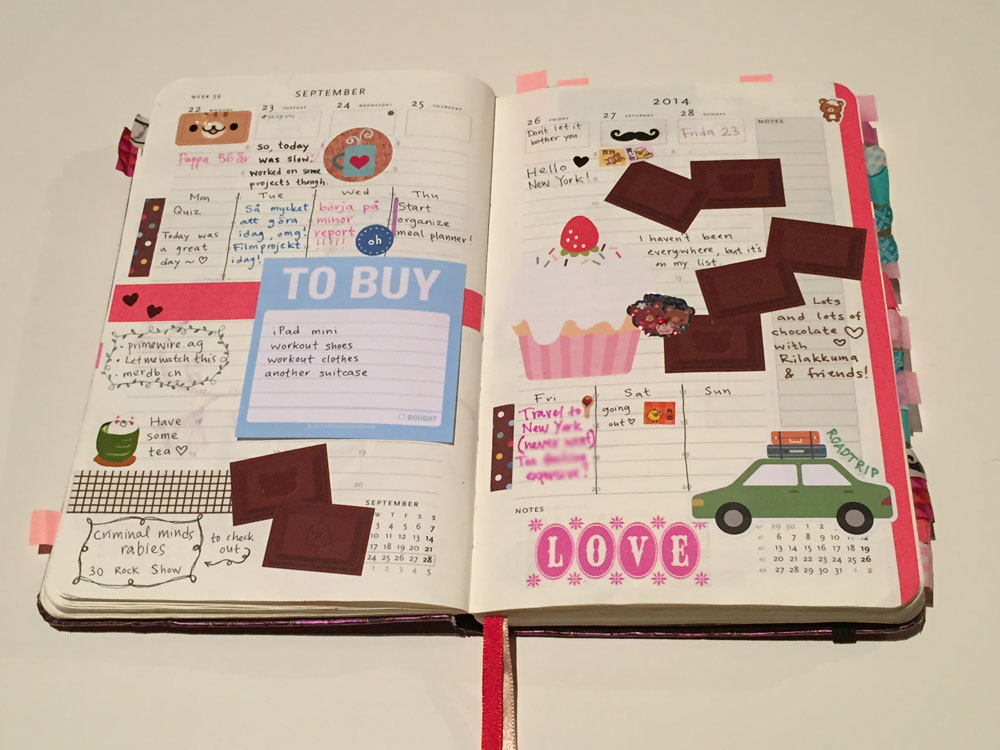 WEEK 39
SEPTEMBER
22 MONDAY
23 TUESDAY
24 WEDNESDAY
25 THURSDAY
Pappa 56 år
so, today
was slow.
worked on some
projects though.
Mon
Quiz
Today was
a great
day ~ ♡
Tue
Så mycket
att göra
idag, omg!
Filmprojekt
idag!
Wed
börja på
minor
report
!!!!!
oh
Thu
Start
organize
meal planner!
TO BUY
iPad mini
workout shoes
workout clothes
another suitcase
BOUGHT
• primewire.ag
• Letmewatch this
• merdb.cn
Have
some
tea ♡
Criminal minds
rabies
30 Rock Show
to check
out
SEPTEMBER
W T F S S
3 4 5 6 7
10 11 12 13 14
17 18 19 20 21
24 25 26 27 28
1 2 3 4 5
2014
26 FRIDAY
27 SATURDAY
28 SUNDAY
NOTES
Dont let it
bother you.
Frida 23
Hello
New York!
I haven't been
everywhere, but it's
on my list
Lots
and lots of
chocolate ♡
with
Rilakkuma
& friends!
Fri
Travel to
New York
(never
Too
expensive!
Sat
going
out ♡
Sun
ROADTRIP
NOTES
LOVE
29 30 1 2
6 7 8 9
13 14 15 16 17 18 19
20 21 22 23 24 25 26
27 28 29 30 31 1 2